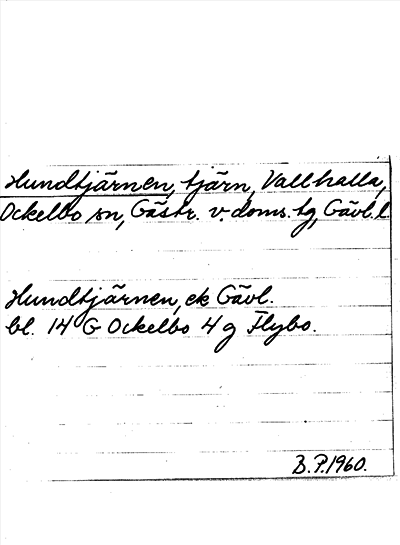 Hundtjärnen, tjärn, Vallhalla,
Ockelbo sn, Gästr. v. doms. tg, Gävl. l
Hundtjärnen, ek Gävl.
bl. 14 G Ockelbo 4 g Flybo.
B.P. 1960.